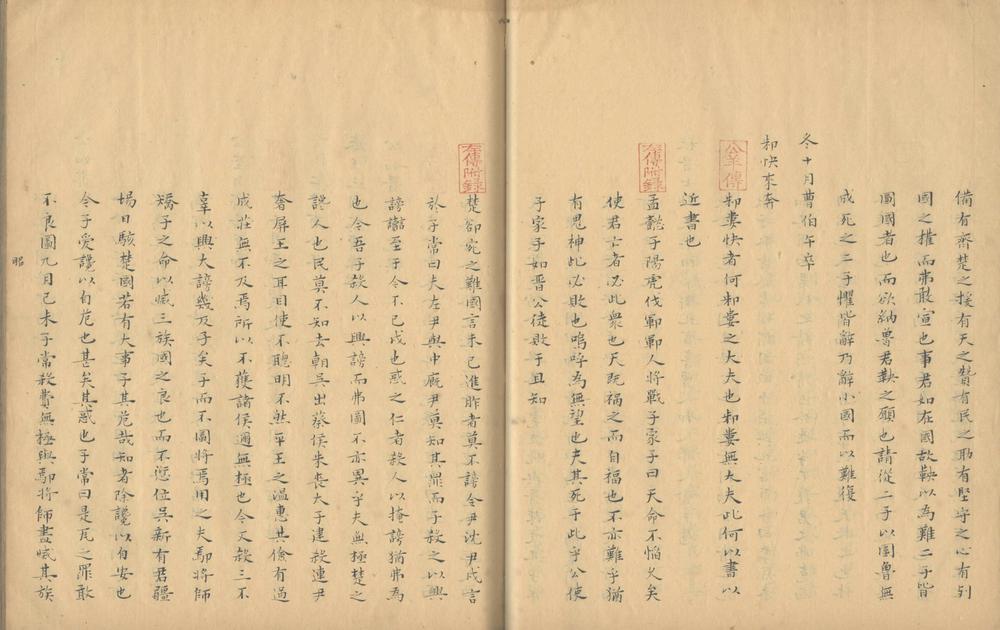 備有齊楚之援有天之贊有民之助有堅守之心有列
國之權而弗敢宣也事君如在國故鞅以為難二子皆
圖國者也而欲納魯君鞅之願也請從二子以圍魯無
成死之二子懼皆辭乃辭小國而以難復
冬十月曹伯午卒
邾快來奔
公羊傳
邾婁快者何邾婁之大夫也邾婁無大夫此何以書以
近書也
左傳附錄
孟懿子陽虎伐鄆鄆人將戰子家子曰天命不慆久矣
使君亡者必此衆也天既禍之而自福也不亦難乎猶
有鬼神此必敗也嗚呼為無望也夫其死于此乎公使
子家子如晉公徒敗于且知
左傳附錄
楚郤宛之難國言未已進胙者莫不謗令尹沈尹戌言
於子常曰夫左尹與中廐尹莫知其罪而子殺之以興
謗讟至于今不已戌也惑之仁者殺人以掩謗猶弗為
也今吾子殺人以興謗而弗圖不亦異乎夫無極楚之
讒人也民莫不知去朝吳出蔡侯朱喪大子建殺連尹
奢屏王之耳目使不聰明不然平王之溫惠其儉有過
成莊無不及焉所以不獲諸侯邇無極也今又殺三不
辜以興大謗幾及子矣子而不圖將焉用之夫鄢將師
矯子之命以滅三族國之良也而不愆位吳新有君疆
埸日駭楚國若有大事子其危哉知者除讒以自安也
今子愛讒以自危也甚矣其惑也子常曰是瓦之罪敢
不良圖九月己未子常殺費無極與鄢將師盡滅其族
昭